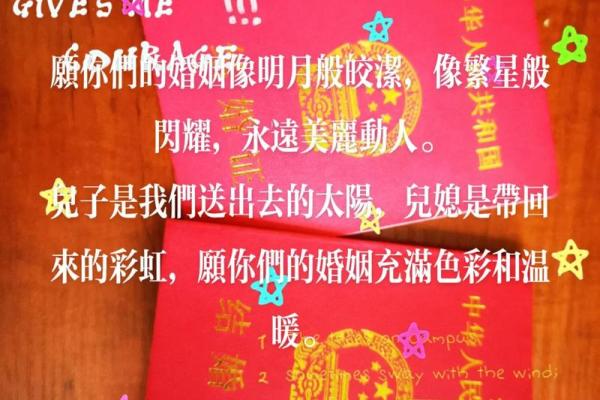 GIVES ME
COURAGE
願你們的婚姻像明月般皎潔，像繁星般
閃耀，永遠美麗動人。
兒子是我們送出去的太陽，兒媳是帶回
來的彩虹，願你們的婚姻充滿色彩和温
暖。
中华人民共和国
结婚证
中华人民
结婚
2 sometimes sway with the wind;